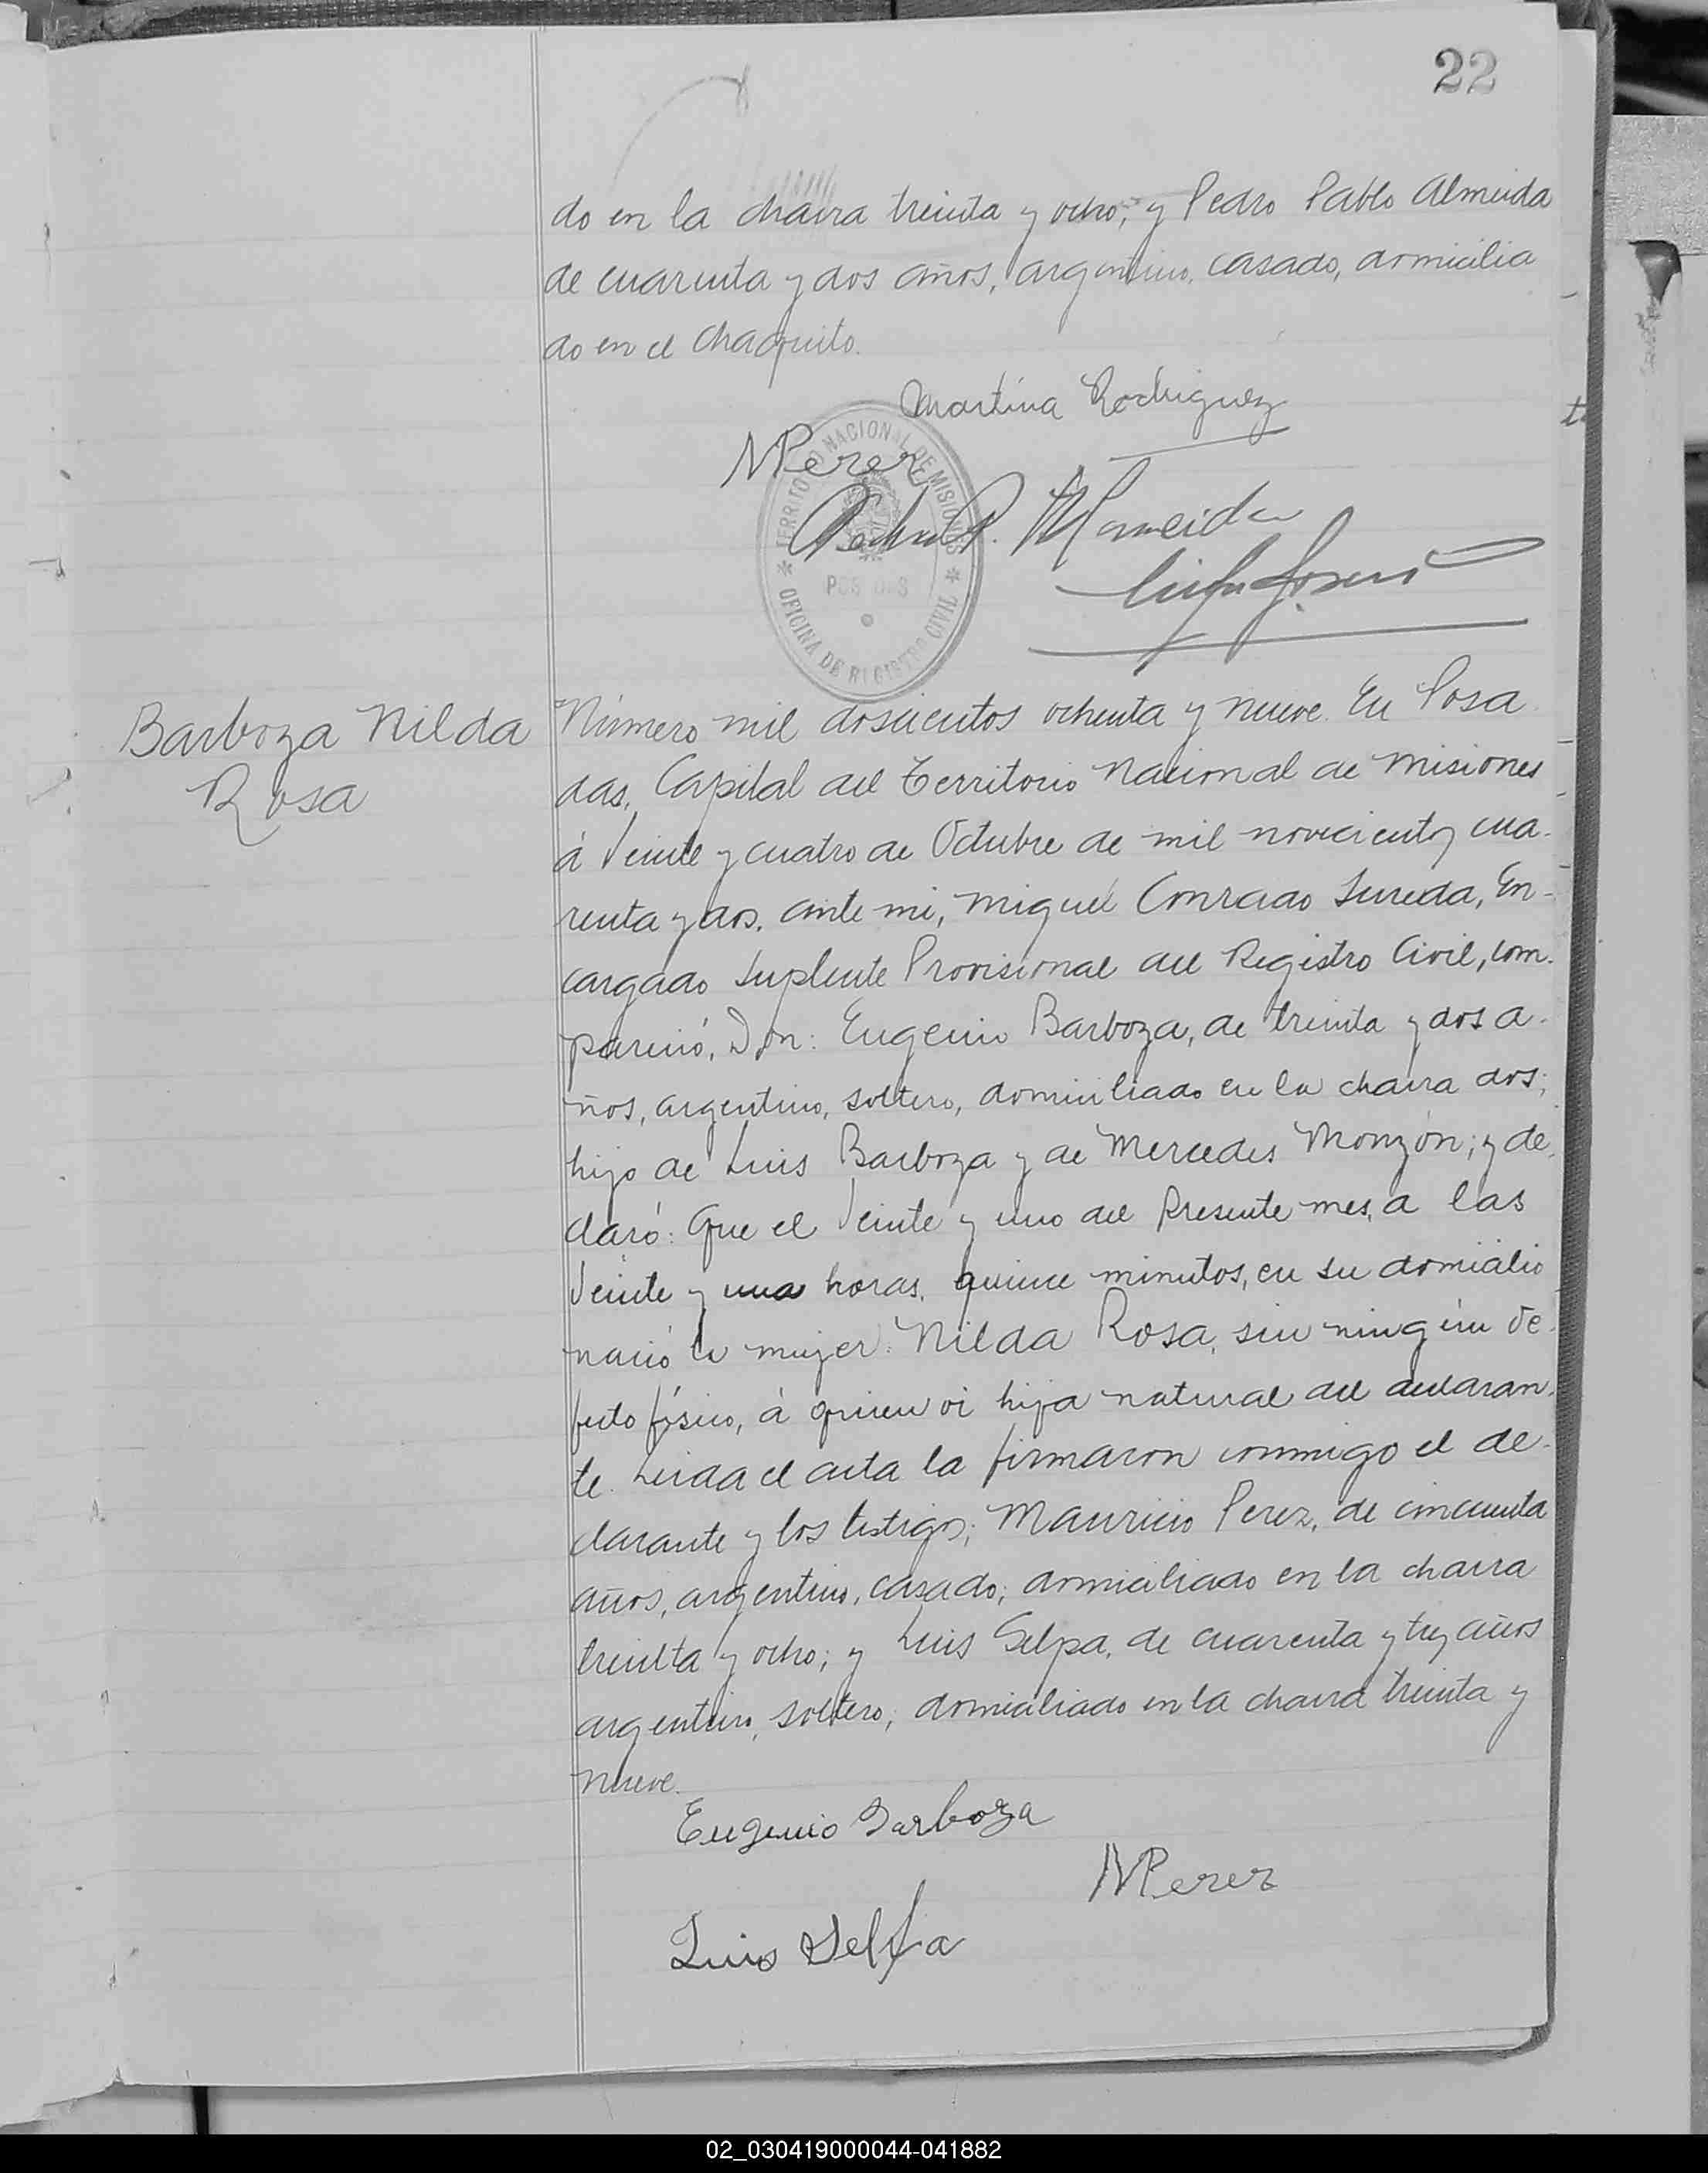 22
do en la chacra treinta y ocho; y Pedro Pablo Almeida
de cuarenta y dos años, argentino, casado, domicilia
do en el Chaquito.
Martina Rodriguez
MPerez
Pedro P. Almeida
TERRITORIO NACIONAL DE MISIONES
POSADAS
OFICINA DE REGISTRO CIVIL
Barboza Nilda
Rosa
Número mil doscientos ochenta y nueve. En Posa
das, Capital del Territorio Nacional de Misiones
á Veinte y cuatro de Octubre de mil novecientos cua-
renta y dos, ante mi, Miguel Conrado Sureda, En-
cargado Suplente Provisional del Registro Civil, com-
pareció, Don: Eugenio Barboza, de treinta y dos a-
ños, argentino, soltero, domiciliado en la chacra dos;
hijo de Luis Barboza y de Mercedes Monzón; y de-
claró: Que el Veinte y uno del Presente mes, a las
Veinte y una horas, quince minutos, en su domicilio
nació la mujer: Nilda Rosa, sin ningún de-
fecto físico, á quien ví hija natural del declaran-
te. Leida el acta la firmaron conmigo el de-
clarante y los testigos; Mauricio Perez, de cincuenta
años, argentino, casado, domiciliado en la chacra
treinta y ocho; y Luis Selpa, de cuarenta y tres años
argentino, soltero, domiciliado en la chacra treinta y
nueve.
Eugenio Barboza
MPerez
Luis Selpa
02_030419000044-041882